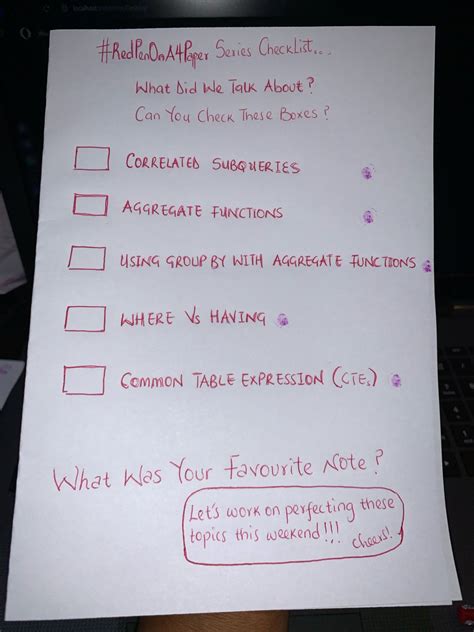 #RedPenOnA4Paper Series CheckList...
What Did We Talk About?
Can You Check These Boxes?
CORRELATED SUBQUERIES
AGGREGATE FUNCTIONS
USING GROUP BY WITH AGGREGATE FUNCTIONS
WHERE Vs HAVING
COMMON TABLE EXPRESSION (CTEs)
What Was Your Favourite Note?
Let's work on perfecting these
topics this weekend!!!
cheers!